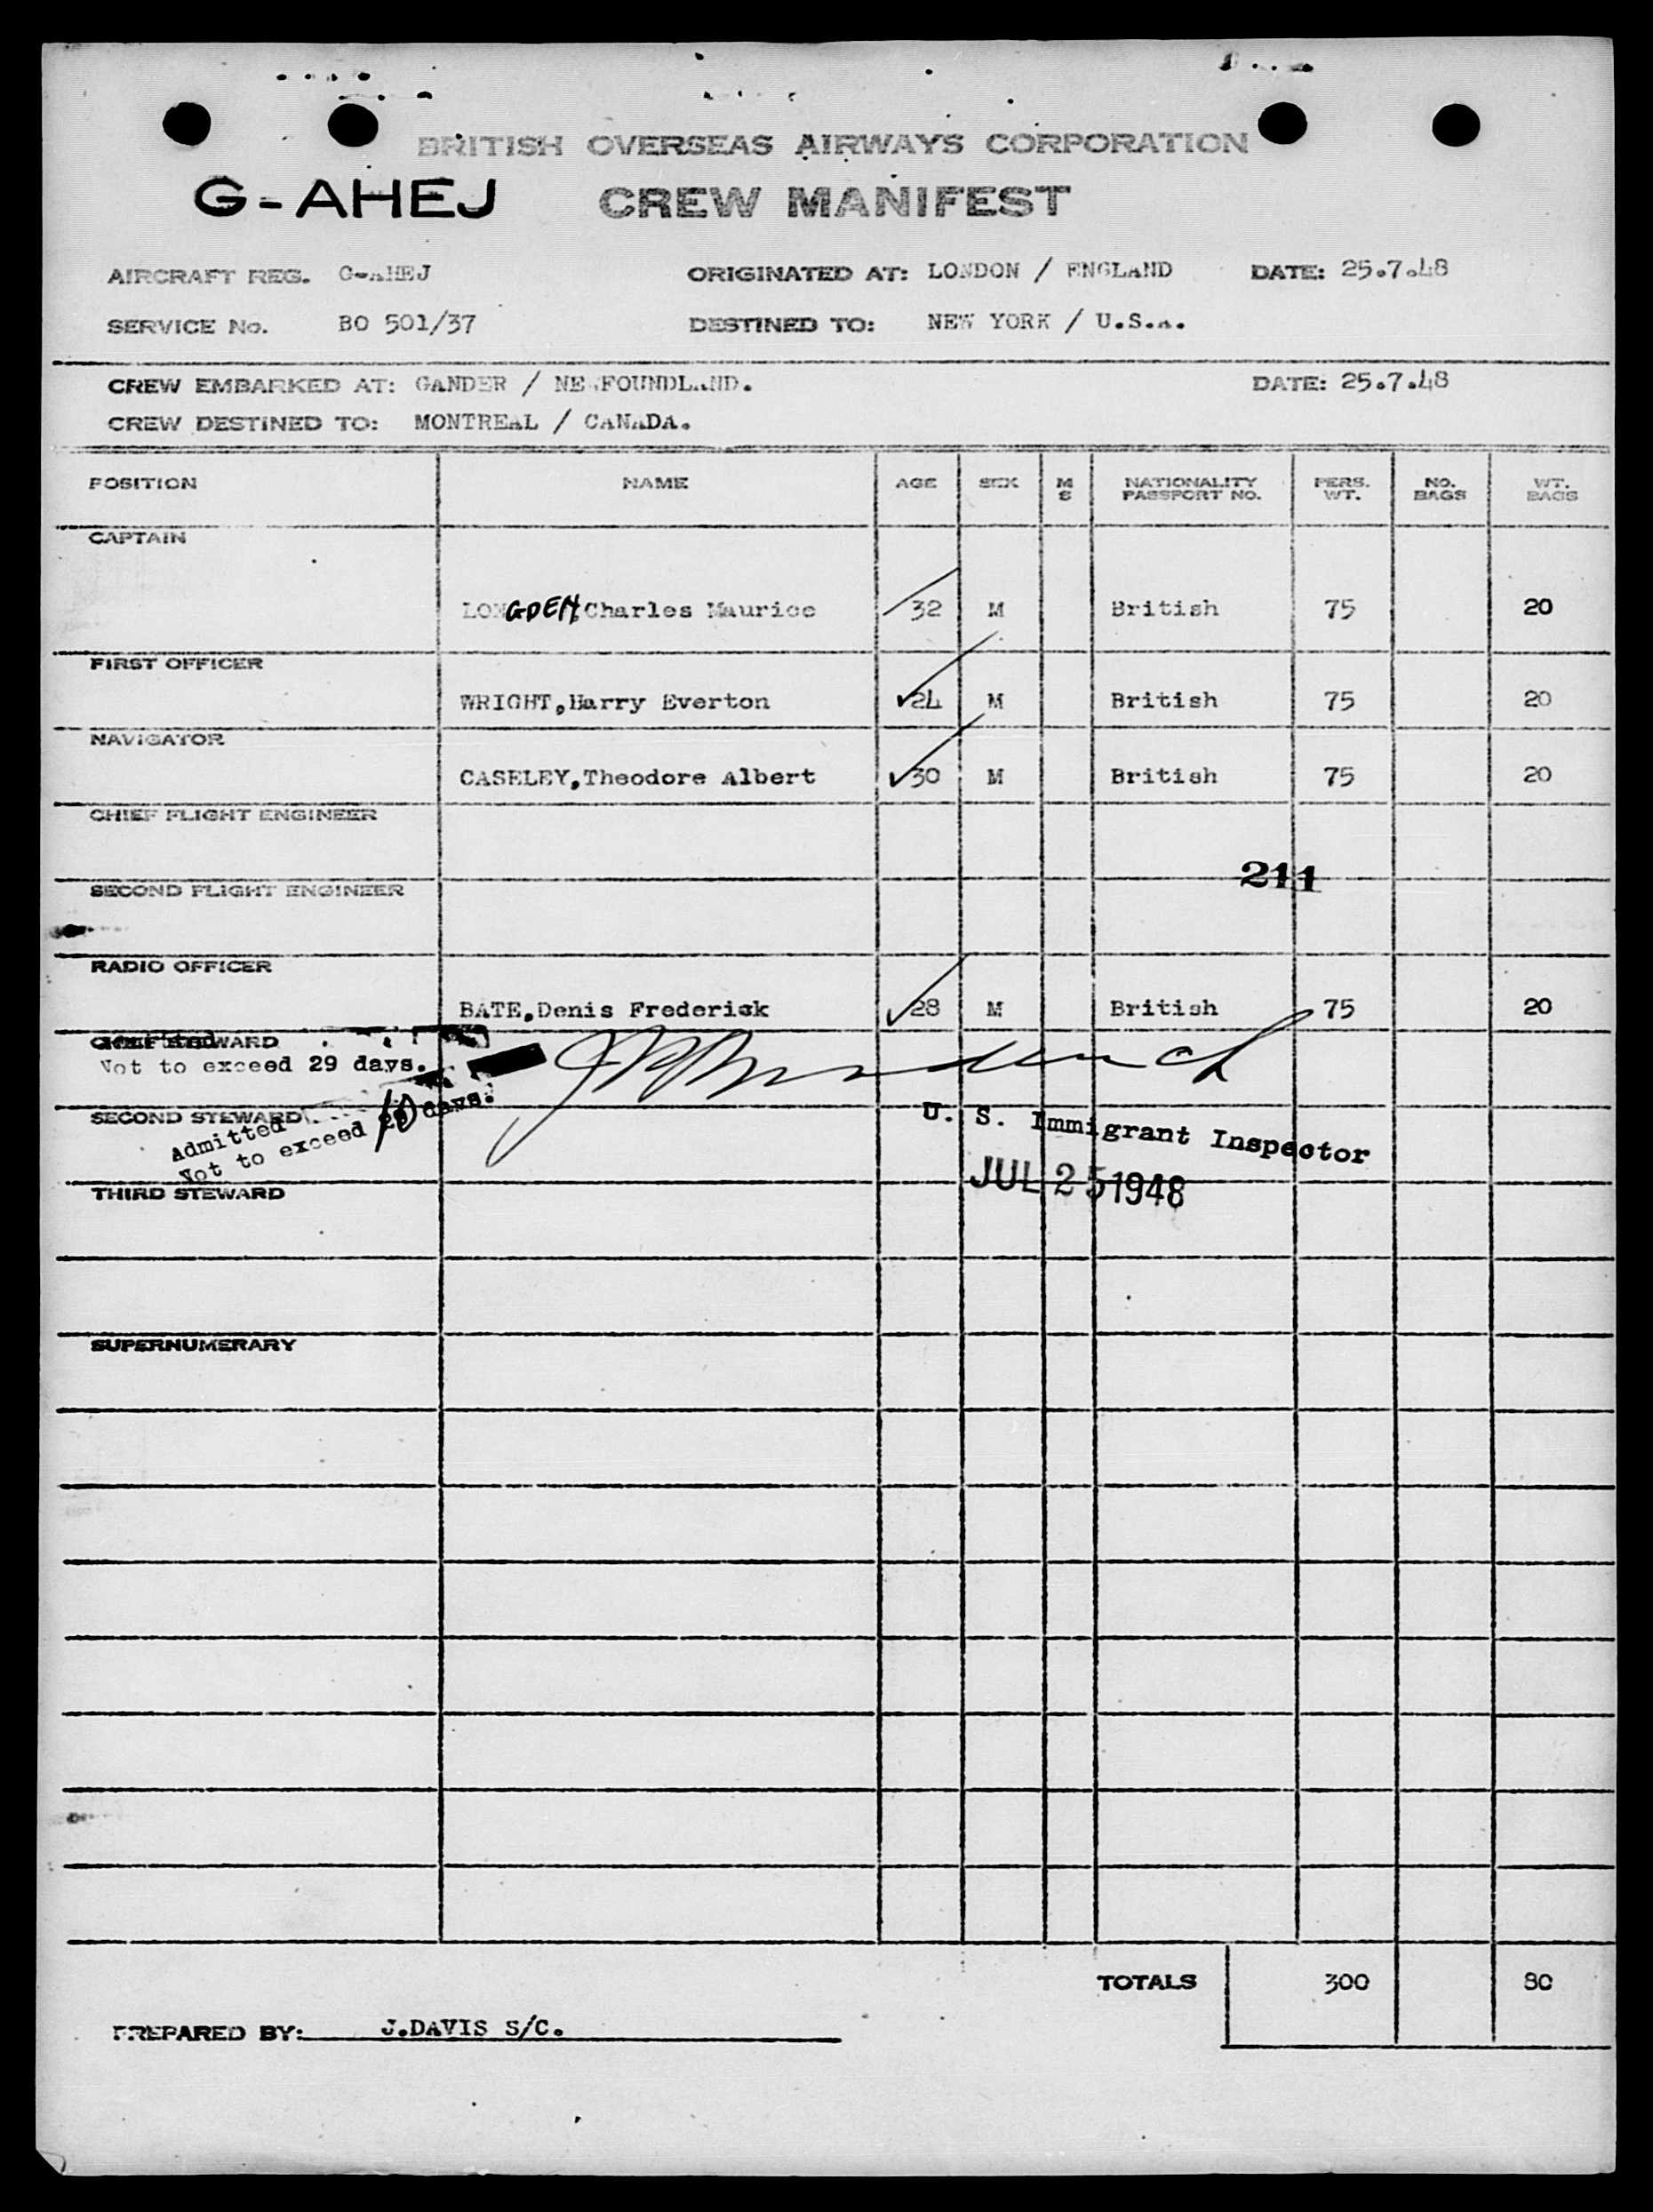 BRITISH OVERSEAS AIRWAYS CORPORATION
G-AHEJ CREW MANIFEST
AIRCRAFT REG. G-AHEJ ORIGINATED AT: LONDON / ENGLAND DATE: 25.7.48
SERVICE No. BO 501/37 DESTINED TO: NEW YORK / U.S.A.
CREW EMBARKED AT: GANDER / NEWFOUNDLAND. DATE: 25.7.48
CREW DESTINED TO: MONTREAL / CANADA.
POSITION NAME AGE SEX M S NATIONALITY PASSPORT NO. PERS. WT. NO. BAGS WT. BAGS
CAPTAIN
LONGDEN, Charles Maurice 32 M British 75 20
FIRST OFFICER
WRIGHT, Harry Everton 24 M British 75 20
NAVIGATOR
CASELEY, Theodore Albert 30 M British 75 20
CHIEF FLIGHT ENGINEER
211
SECOND FLIGHT ENGINEER
RADIO OFFICER
BATE, Denis Frederick 28 M British 75 20
CHIEF STEWARD
Not to exceed 29 days.
SECOND STEWARD
Admitted
Not to exceed 10 days.
U. S. Immigrant Inspector
JUL 25 1948
THIRD STEWARD
SUPERNUMERARY
TOTALS 300 80
PREPARED BY: J.DAVIS S/C.